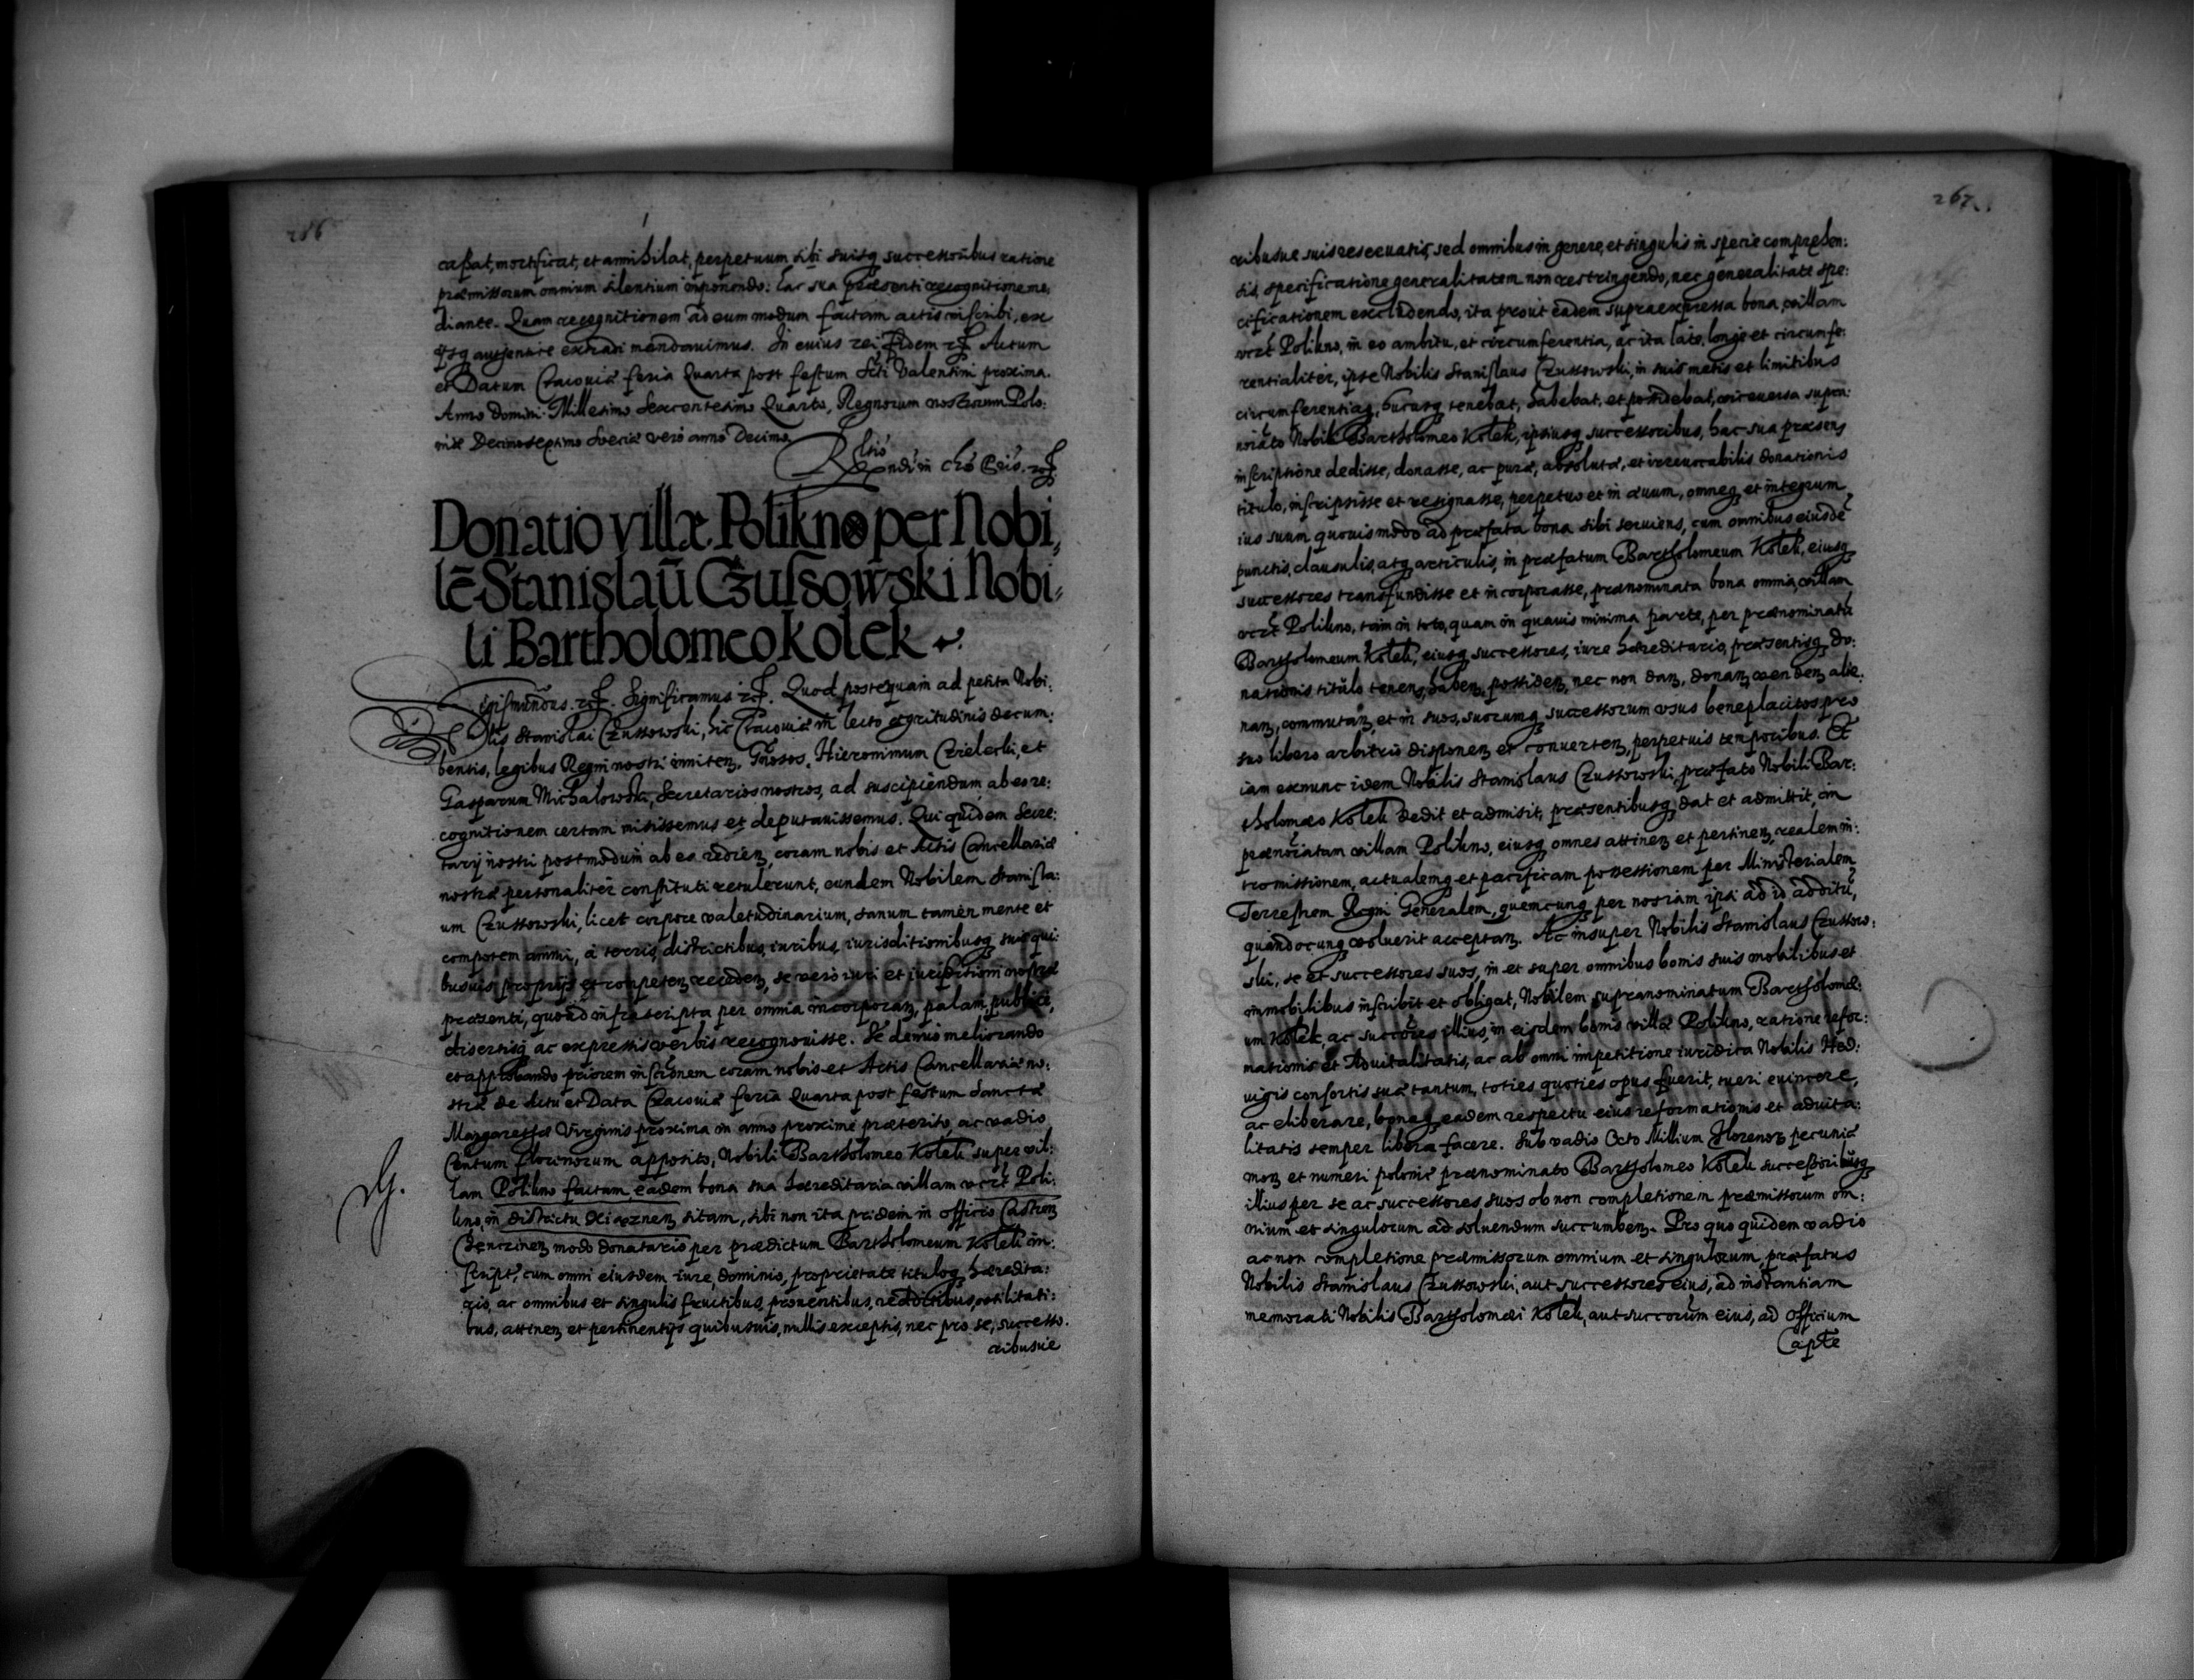 286
cassat, mortificat, et annihilat, perpetuum sibi suisq successoribus ratione
præmissorum omnium silentium imponendo: hac sua præsenti recognitione me:
diante. Quam recognitionem ad eum modum factam actis inscribi, ex
ijsq autentice extradi mandavimus. In cuius rei fidem etc Actum
et Datum Cracoviæ feria Quarta post festum Scti Valentini proxima.
Anno Domini Millesimo Sexcentesimo Quarto, Regnorum nostrorum Polo:
niæ Decimoseptimo Sveciæ vero anno Decimo.
Donatio villæ Polikno per Nobi,
lē Stanislaū Czussowski Nobi,
li Bartholomeo Kolek
Sigismundus etc. Significamus etc. Quod postequam ad petita Nobi:
lis Stanislai Czussowski, hic Cracoviæ in lecto ægritudinis decum:
bentis, legibus Regni nostri inniten, Gnosos, Hieronimum Czielecki, et
Gasparum Michalowski, Secretarios nostros, ad suscipiendum ab eo re:
cognitionem certam misissemus et deputavissemus. Qui quidem Secre:
tarij nostri postmodum ab eo redien, coram nobis et Actis Cancellariæ
nostræ personaliter constituti retulerunt, eundem Nobilem Stanisla:
um Czussowski, licet corpore valetudinarium, sanum tamen mente et
compotem animi, à terris, districtibus, iuribus, iurisditionibusq suis qui:
busvis proprijs et competen receden, se vero iuri et iurisditioni nostræ
præsenti, quoad infrascripta per omnia incorporan, palam, publice,
disertisq ac expressis verbis recognovisse. Se denuo meliorando
et approbando priorem inscrōnem coram nobis et Actis Cancellariæ no:
stræ de Actu et Data Cracoviæ feria Quarta post festum Sanctæ
Margarethæ Virginis proxima in anno proxime præterito, ac vadio
Centum florenorum apposito, Nobili Bartholomeo Kolek super vil:
lam Polikno factam, eadem bona sua hæreditaria villam vczt Poli:
kno, in districtu sitam, sibi non ita pridem in officio Castren
modo donatario per prædictum Bartholomeum Kolek in:
script, cum omni eiusdem iure, dominio, proprietate tituloq hæredita:
rio, ac omnibus et singulis fructibus, proventibus, redditibus, utilitati:
bus, attinen et pertinentijs quibusvis, nullis exceptis, nec pro se, successo:
ribusve
267
ribusve suis reservatis, sed omnibus in genere, et singulis in specie comprehen:
sis, specificatione generalitatem non restringendo, nec generalitate spe:
cificationem excludendo, ita prout eadem supraexpressa bona, villam
vczt Polikno, in eo ambitu, et circumferentia, ac ita late, longe et circumfe:
rentialiter, ipse Nobilis Stanislaus Czussowski, in suis metis et limitibus
circumferentiaq, hucusq tenebat, habebat, et possidebat, universa supra:
noiato Nobili Bartholomeo Kolek, ipsiusq successoribus, hac sua præsens
inscriptione dedisse, donasse, ac puræ, absolutæ, et irrevocabilis donationis
titulo, inscripsisse et resignasse, perpetuo et in ævum, omneq et integrum
ius suum quovismodo ad præfata bona sibi serviens, cum omnibus eiusdē
punctis, clausulis, atq articulis, in præfatum Bartholomeum Kolek, eiusq
successores transfundisse et incorporasse, prænominata bona omnia, villam
vczt Polikno, tam in toto, quam in quavis minima parte, per prænominatū
Bartholomeum Kolek, eiusq successores, iure hæreditario, præsentisq do:
nationis titulo tenen, haben, possiden, nec non dan, donan, venden, alie:
nan, commutan, et in suos, suorumq successorum usus beneplacitos pro
suo libero arbitrio disponen et converten, perpetuis temporibus. Et
iam exnunc idem Nobilis Stanislaus Czussowski, præfato Nobili Bar:
tholomæo Kolek dedit et admisit, præsentibusq dat et admittit, in
prænoiatam villam Polikno, eiusq omnes attinen et pertinen, realem in:
tromissionem, actualemq et pacificam possessionem per Ministerialem
Terrestrem Regni Generalem, quemcunq per nostram ipsi ad id additū,
quandocunq voluerit acceptan. Ac insuper Nobilis Stanislaus Czussow:
ski, se et successores suos, in et super omnibus bonis suis mobilibus et
immobilibus inscribit et obligat, Nobilem supranominatum Bartholomæ:
um Kolek, ac succores illius, in eisdem bonis villæ Polikno, ratione refor:
mationis et Advitalitatis, ac ab omni impetitione iuridica Nobilis Hed:
vigis consortis suæ tantum, toties quoties opus fuerit, tueri evincere,
ac eliberare, bonaq eadem respectu eius reformationis et advita:
litatis semper libera facere. Sub vadio Octo Millium florenor pecuniæ
mon et numeri polonic prænominato Bartholomeo Kolek successoribusq
illius per se ac successores suos ob non completionem præmissorum om:
nium et singulorum ad solvendum succumben. Pro quo quidem vadio
ac non completione præmissorum omnium et singulorum, præfatus
Nobilis Stanislaus Czussowski, aut successores eius, ad instantiam
memorati Nobilis Bartholomæi Kolek, aut succorum eius, ad officium
Capte